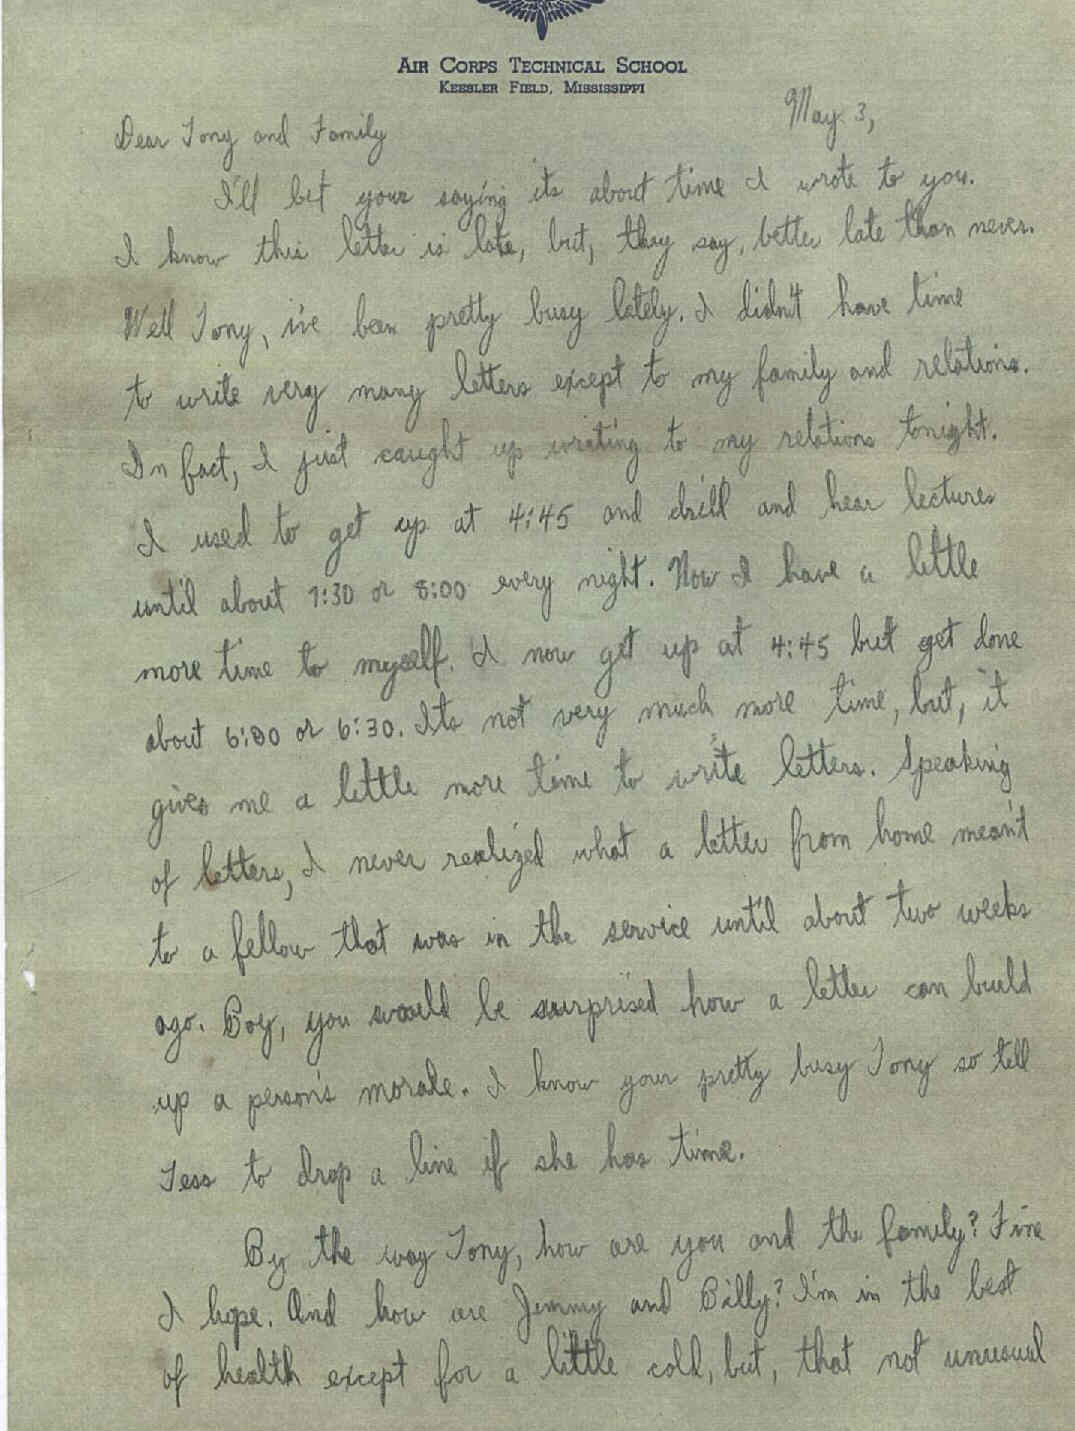 AIR CORPS TECHNICAL SCHOOL
KEESLER FIELD, MISSISSIPPI
May 3,
Dear Tony and Family
I'll bet your saying its about time I wrote to you.
I know this letter is late, but, they say, better late than never.
Well Tony, i've been pretty busy lately. I didn't have time
to write very many letters except to my family and relations.
In fact, I just caught up writing to my relations tonight.
I used to get up at 4:45 and drill and hear lectures
until about 7:30 or 8:00 every night. Now I have a little
more time to myself. I now get up at 4:45 but get done
about 6:00 or 6:30. Its not very much more time, but, it
gives me a little more time to write letters. Speaking
of letters, I never realized what a letter from home mean't
to a fellow that was in the service until about two weeks
ago. Boy, you would be surprised how a letter can build
up a person's morale. I know your pretty busy Tony so tell
Tess to drop a line if she has time.
By the way Tony, how are you and the family? Fine
I hope. And how are Jimmy and Billy? I'm in the best
of health except for a little cold, but, that not unusual